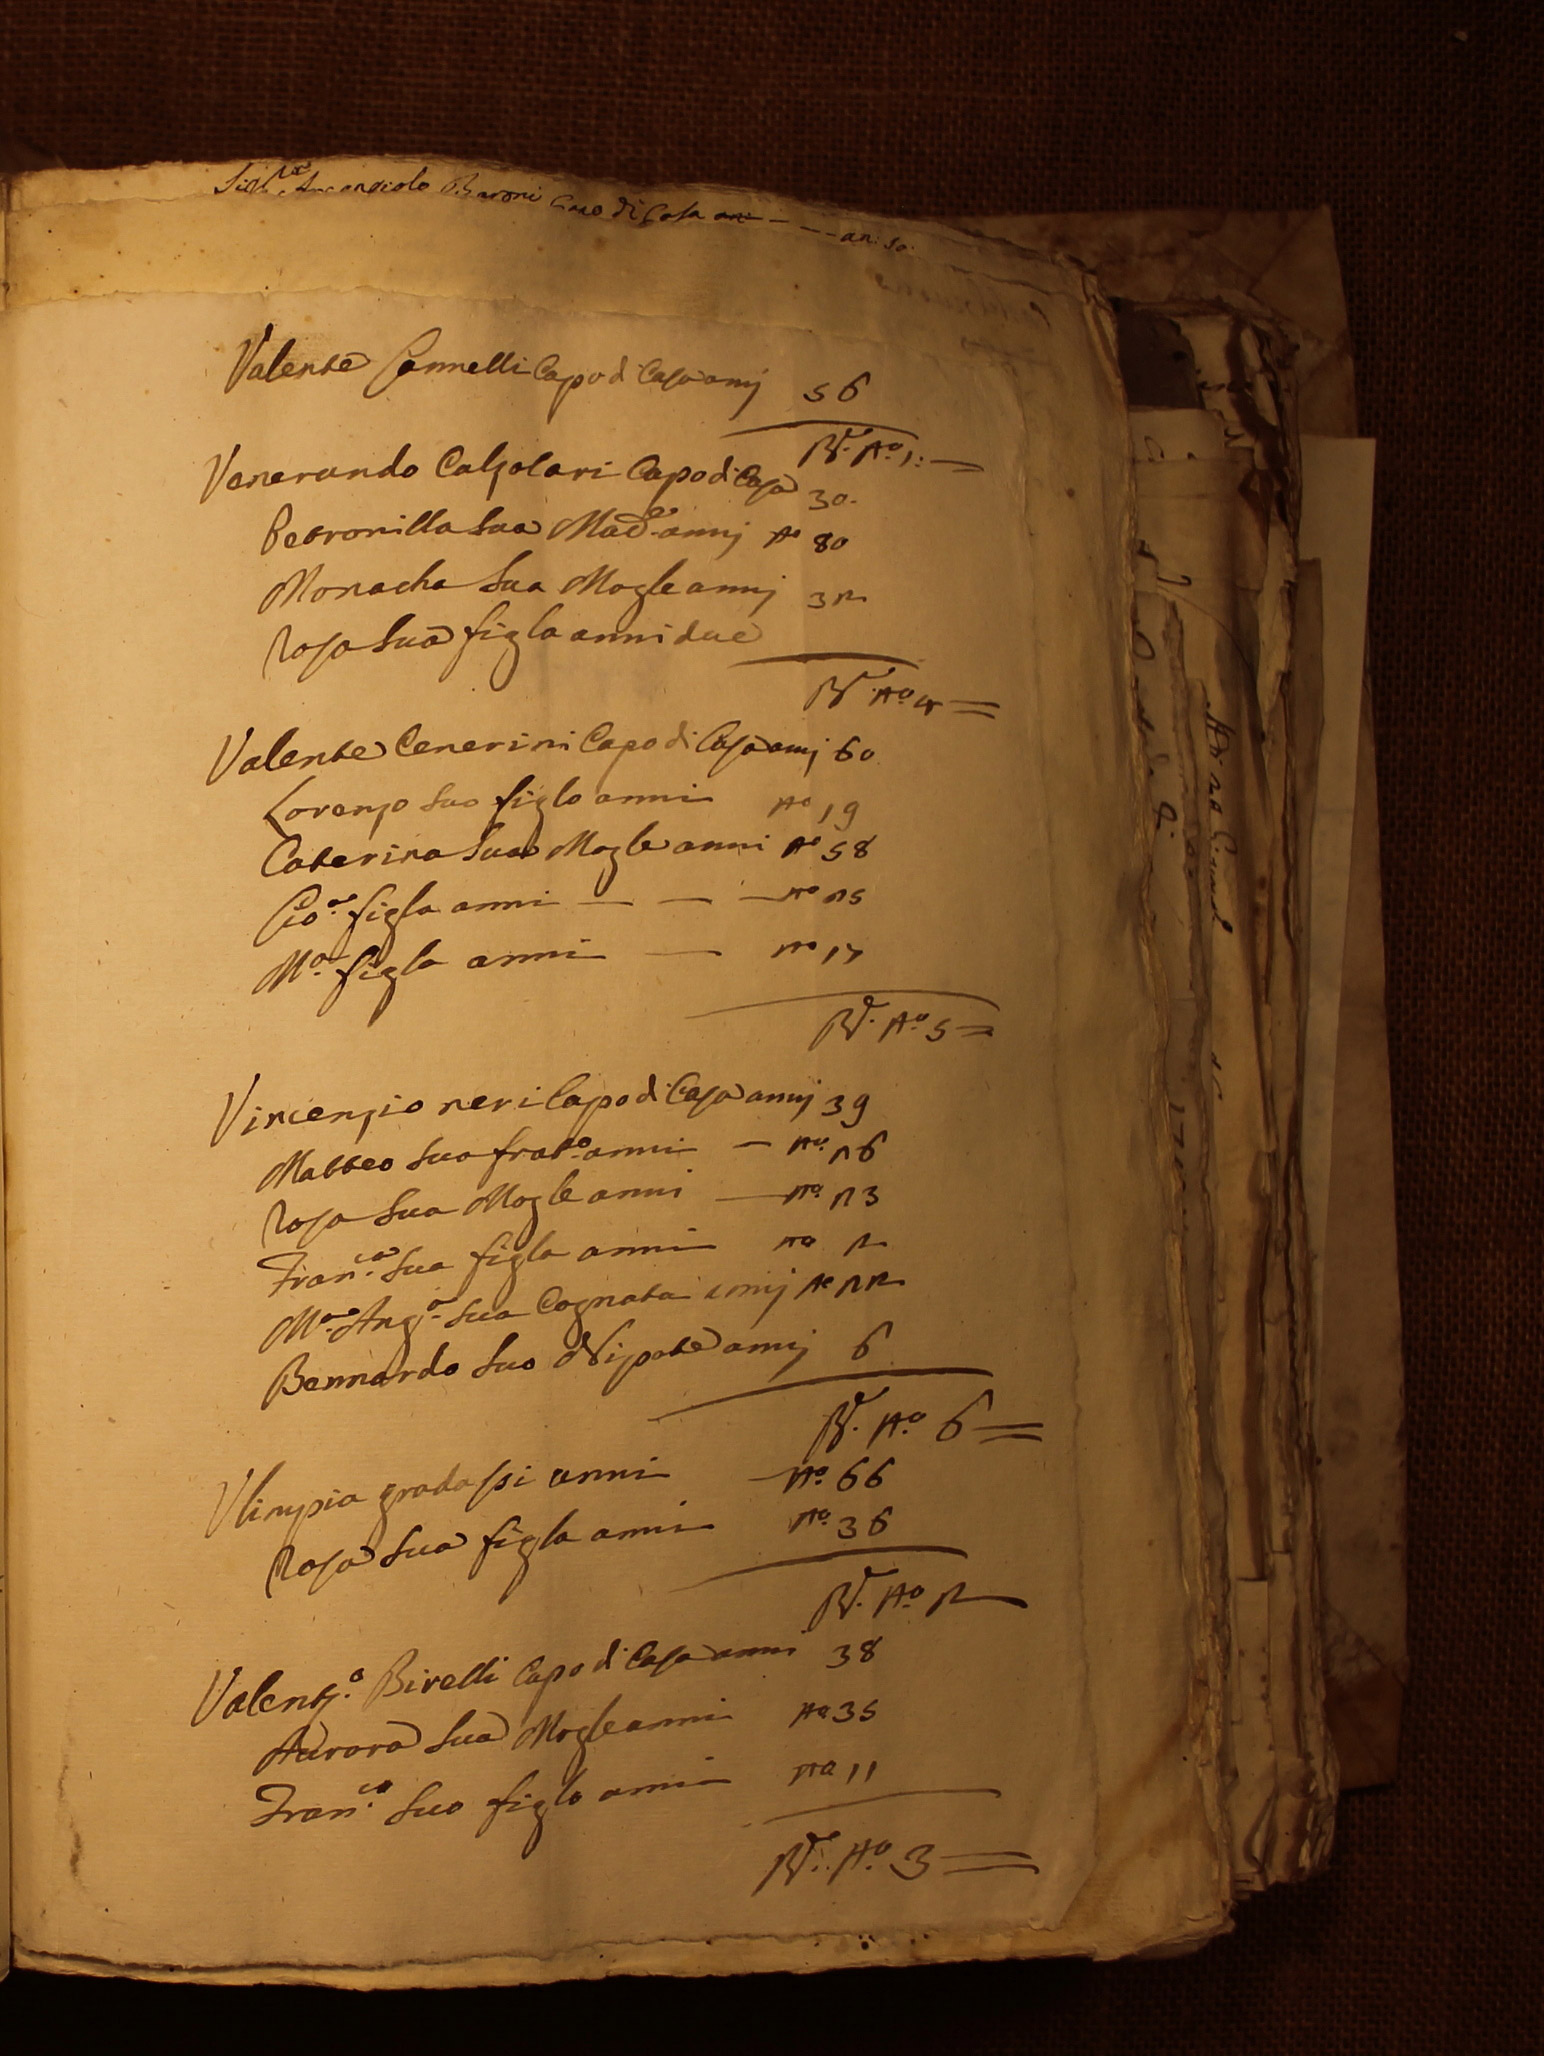 Baroni Capo di Casa an: 50.
Valente Cannelli Capo di Casa annj 56
Re. No. 1:
Venerando Calzolari Capo di Casa 30.
Petronilla Sua Made. annj No 80
Monacha Sua Mogle annj 32
Rosa Sua figla anni due
Re. No. 4
Valente Cenerini Capo di Casa annj 60
Lorenzo suo figlo anni No 19
Caterina Sua Mogle anni No 58
Gioa. figla anni — — — No 25
Ma. figla anni — No 17
Re. No. 5
Vincenzio neri Capo di Casa annj 39
Matteo suo frato. anni — No. 26
Rosa Sua Mogle anni — No. 23
Franca. Sua figla anni No 2
Ma. Anga. sua Cognata annj No 22
Bennardo suo Nipote annj 6
Re. No. 6
Vlimpia gradassi anni — No. 66
Rosa Sua figla anni No. 36
Re. No. 2
Valentz.o Birelli Capo di Casa anni 38
Aurora Sua Mogle anni No 35
Franco. suo figlo anni No 11
Re. No. 3